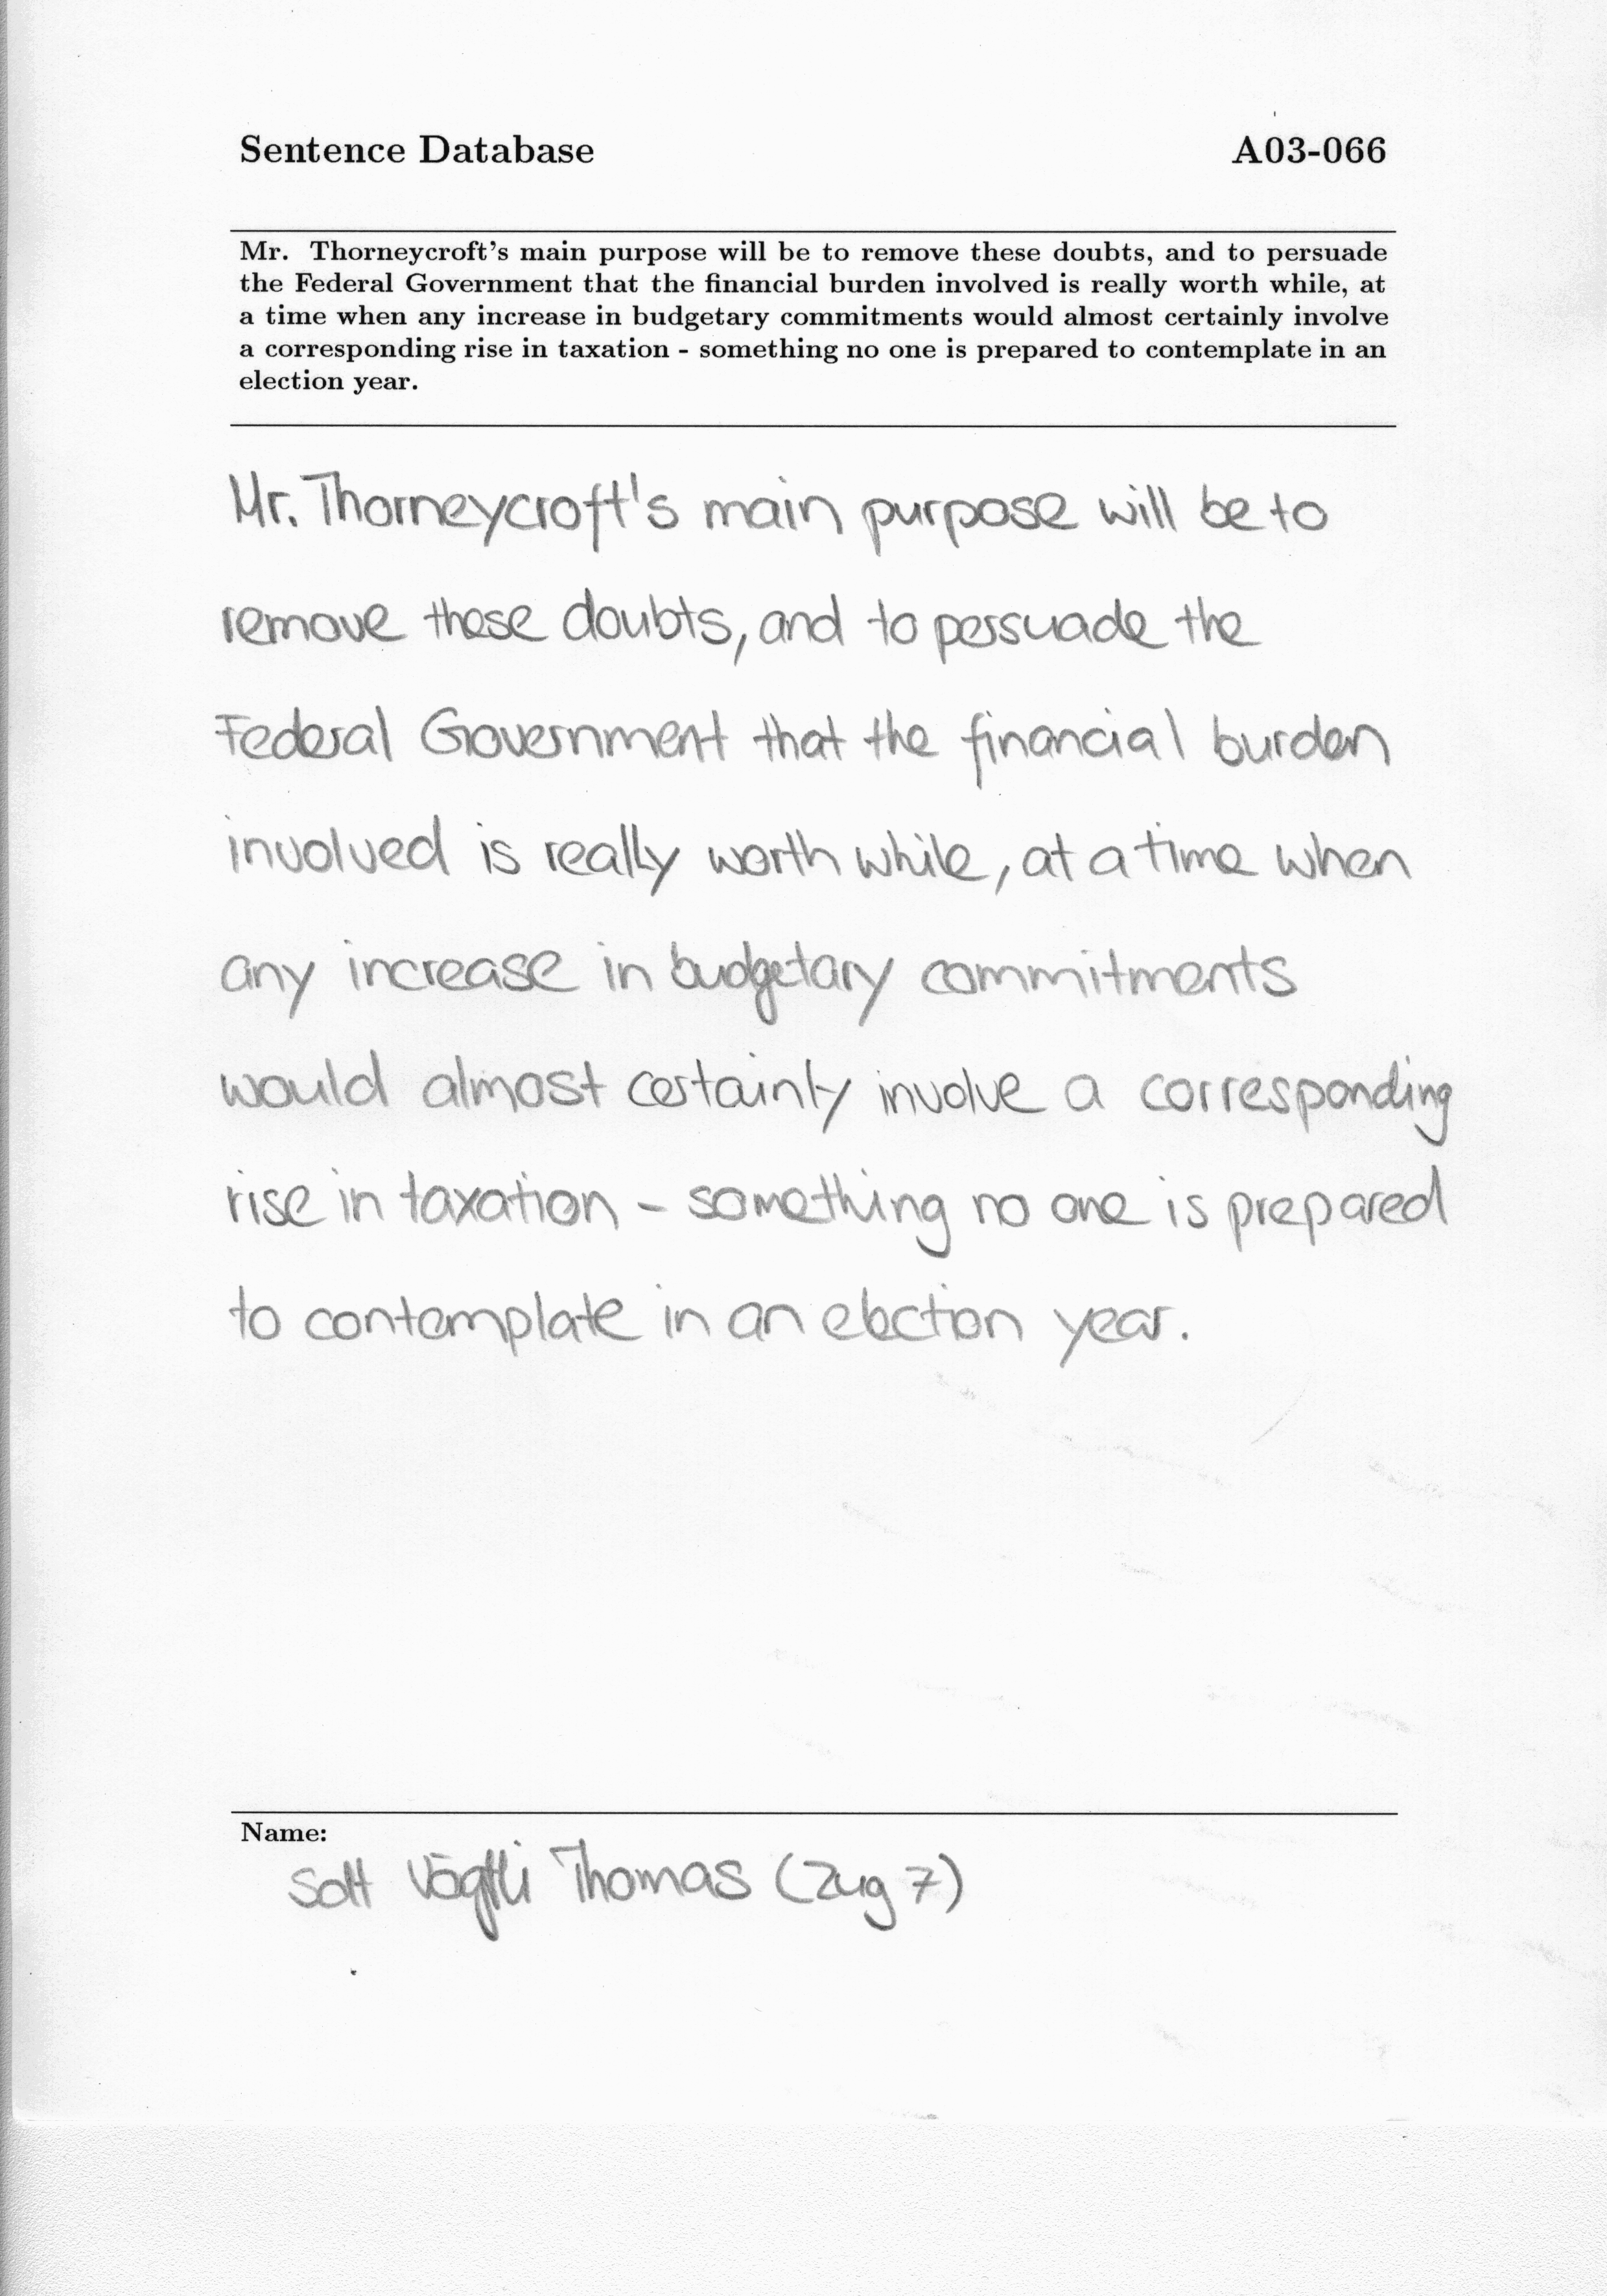 Sentence Database A03-066
Mr. Thorneycroft's main purpose will be to remove these doubts, and to persuade
the Federal Government that the financial burden involved is really worth while, at
a time when any increase in budgetary commitments would almost certainly involve
a corresponding rise in taxation - something no one is prepared to contemplate in an
election year.
Mr. Thorneycroft's main purpose will be to
remove these doubts, and to persuade the
Federal Government that the financial burden
involved is really worth while, at a time when
any increase in budgetary commitments
would almost certainly involve a corresponding
rise in taxation - something no one is prepared
to contemplate in an election year.
Name:
Sdt Vögtli Thomas (Zug 7)